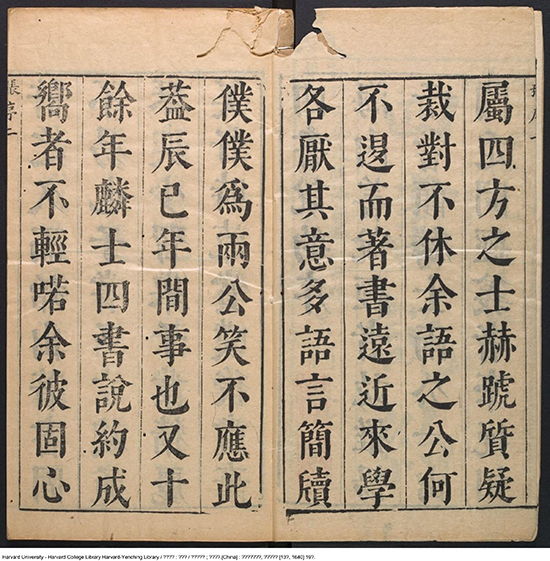 屬四方之士赫蹏質疑
裁對不休余語之公何
不遑而著書遠近來學
各厭其意多語言簡牘
僕僕爲兩公笑不應此
葢辰巳年間事也又十
餘年麟士四書說約成
嚮者不輕喏余彼固心
張序二
Harvard University - Harvard College Library Harvard-Yenching Library / ???? : ??? / ????? ; ???? [China] : ???????, ?????